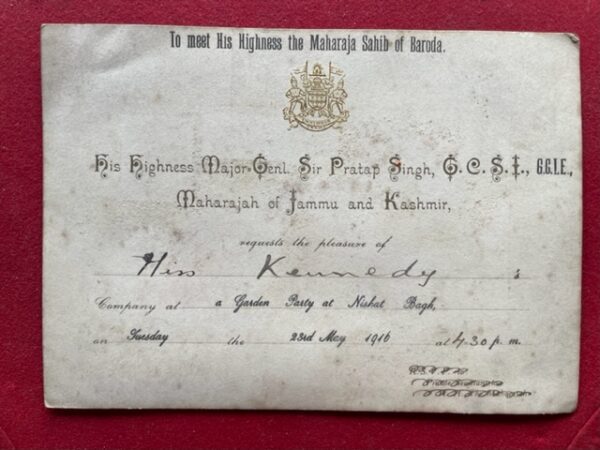 To meet His Highness the Maharaja Sahib of Baroda.
His Highness Major-Genl. Sir Pratap Singh, G.C.S.I., G.C.I.E.,
Maharajah of Jammu and Kashmir,
requests the pleasure of
Miss Kennedy 's
Company at a Garden Party at Nishat Bagh,
on Tuesday the 23rd May 1916 at 4-30 p. m.